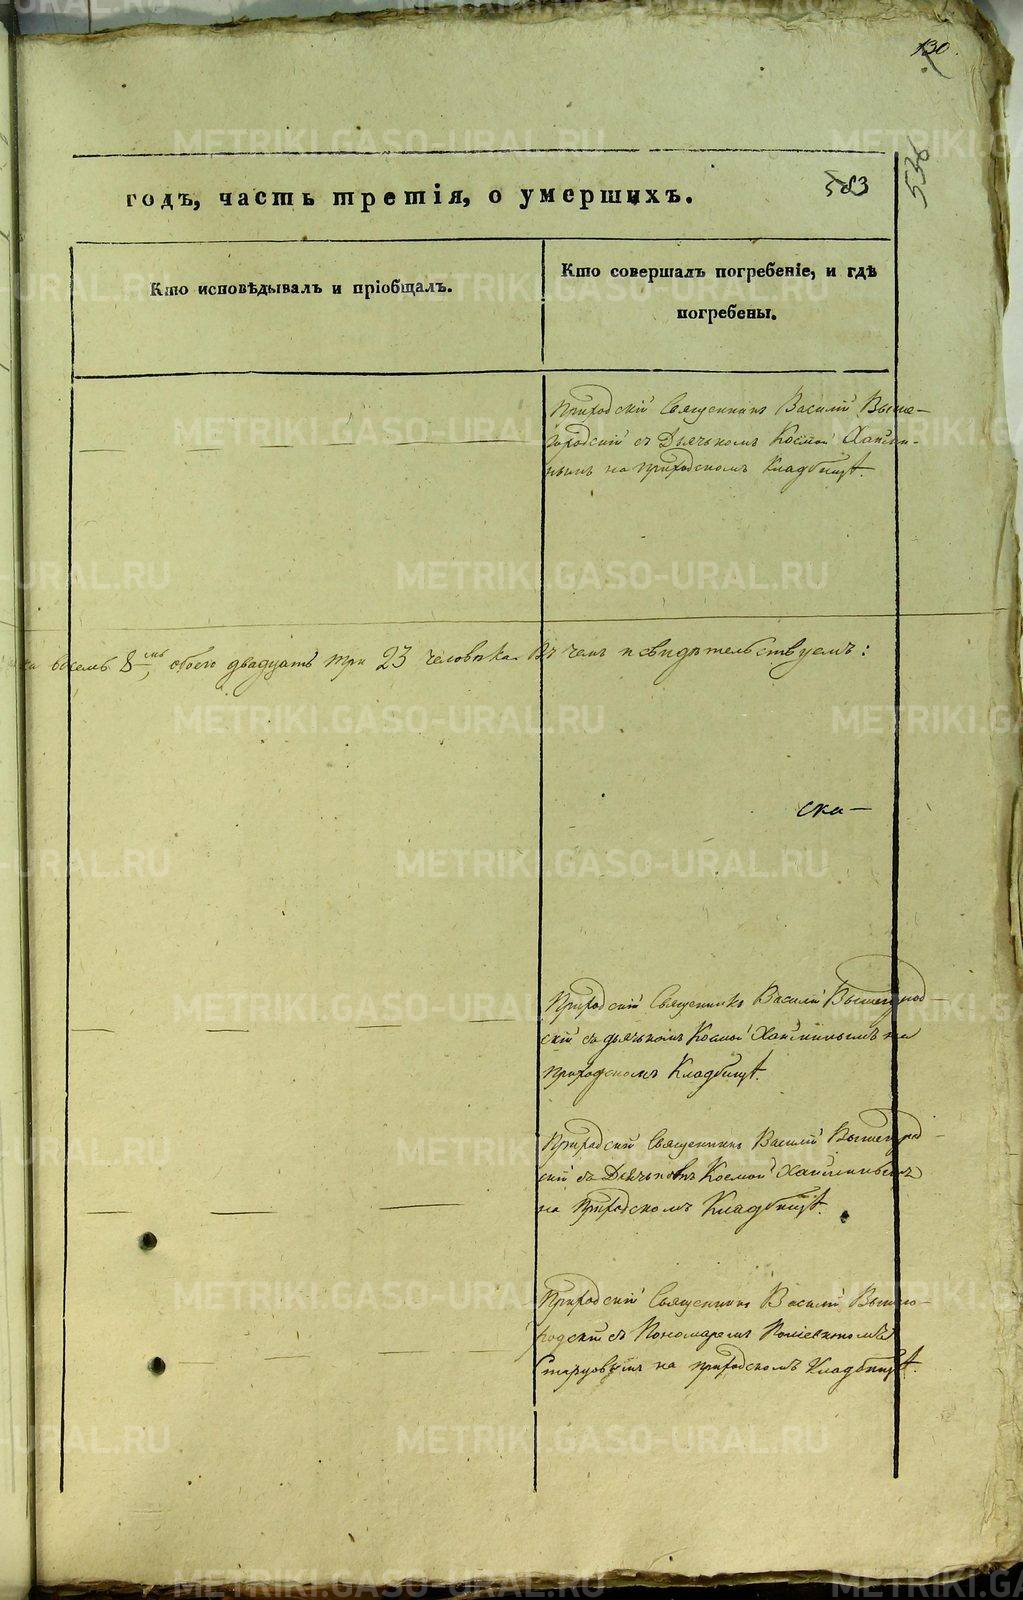 130.
536
583
годъ, часть третія, о умершихъ.
Кто исповѣдывалъ и пріобщалъ.
Кто совершалъ погребеніе, и гдѣ
погребены.
Приходскій Священникъ Василій Выше-
городскій съ Дьячкомъ Космой
на приходскомъ Кладбищѣ.
восемь 8мь, обоего двадцать три 23 человѣка. Въ чемъ и свидѣтельствуемъ:
ска-
Приходскій Священникъ Василій Вышегород-
скій съ дьячкомъ Космой на
приходскомъ Кладбищѣ.
Приходскій Священникъ Василій Вышегород-
скій съ Дьячкомъ Космой
на Приходскомъ Кладбищѣ.
Приходскій Священникъ Василій Вышего-
родскій съ Пономаремъ
Старцовымъ на приходскомъ Кладбищѣ.
METRIKI.GASO-URAL.RU